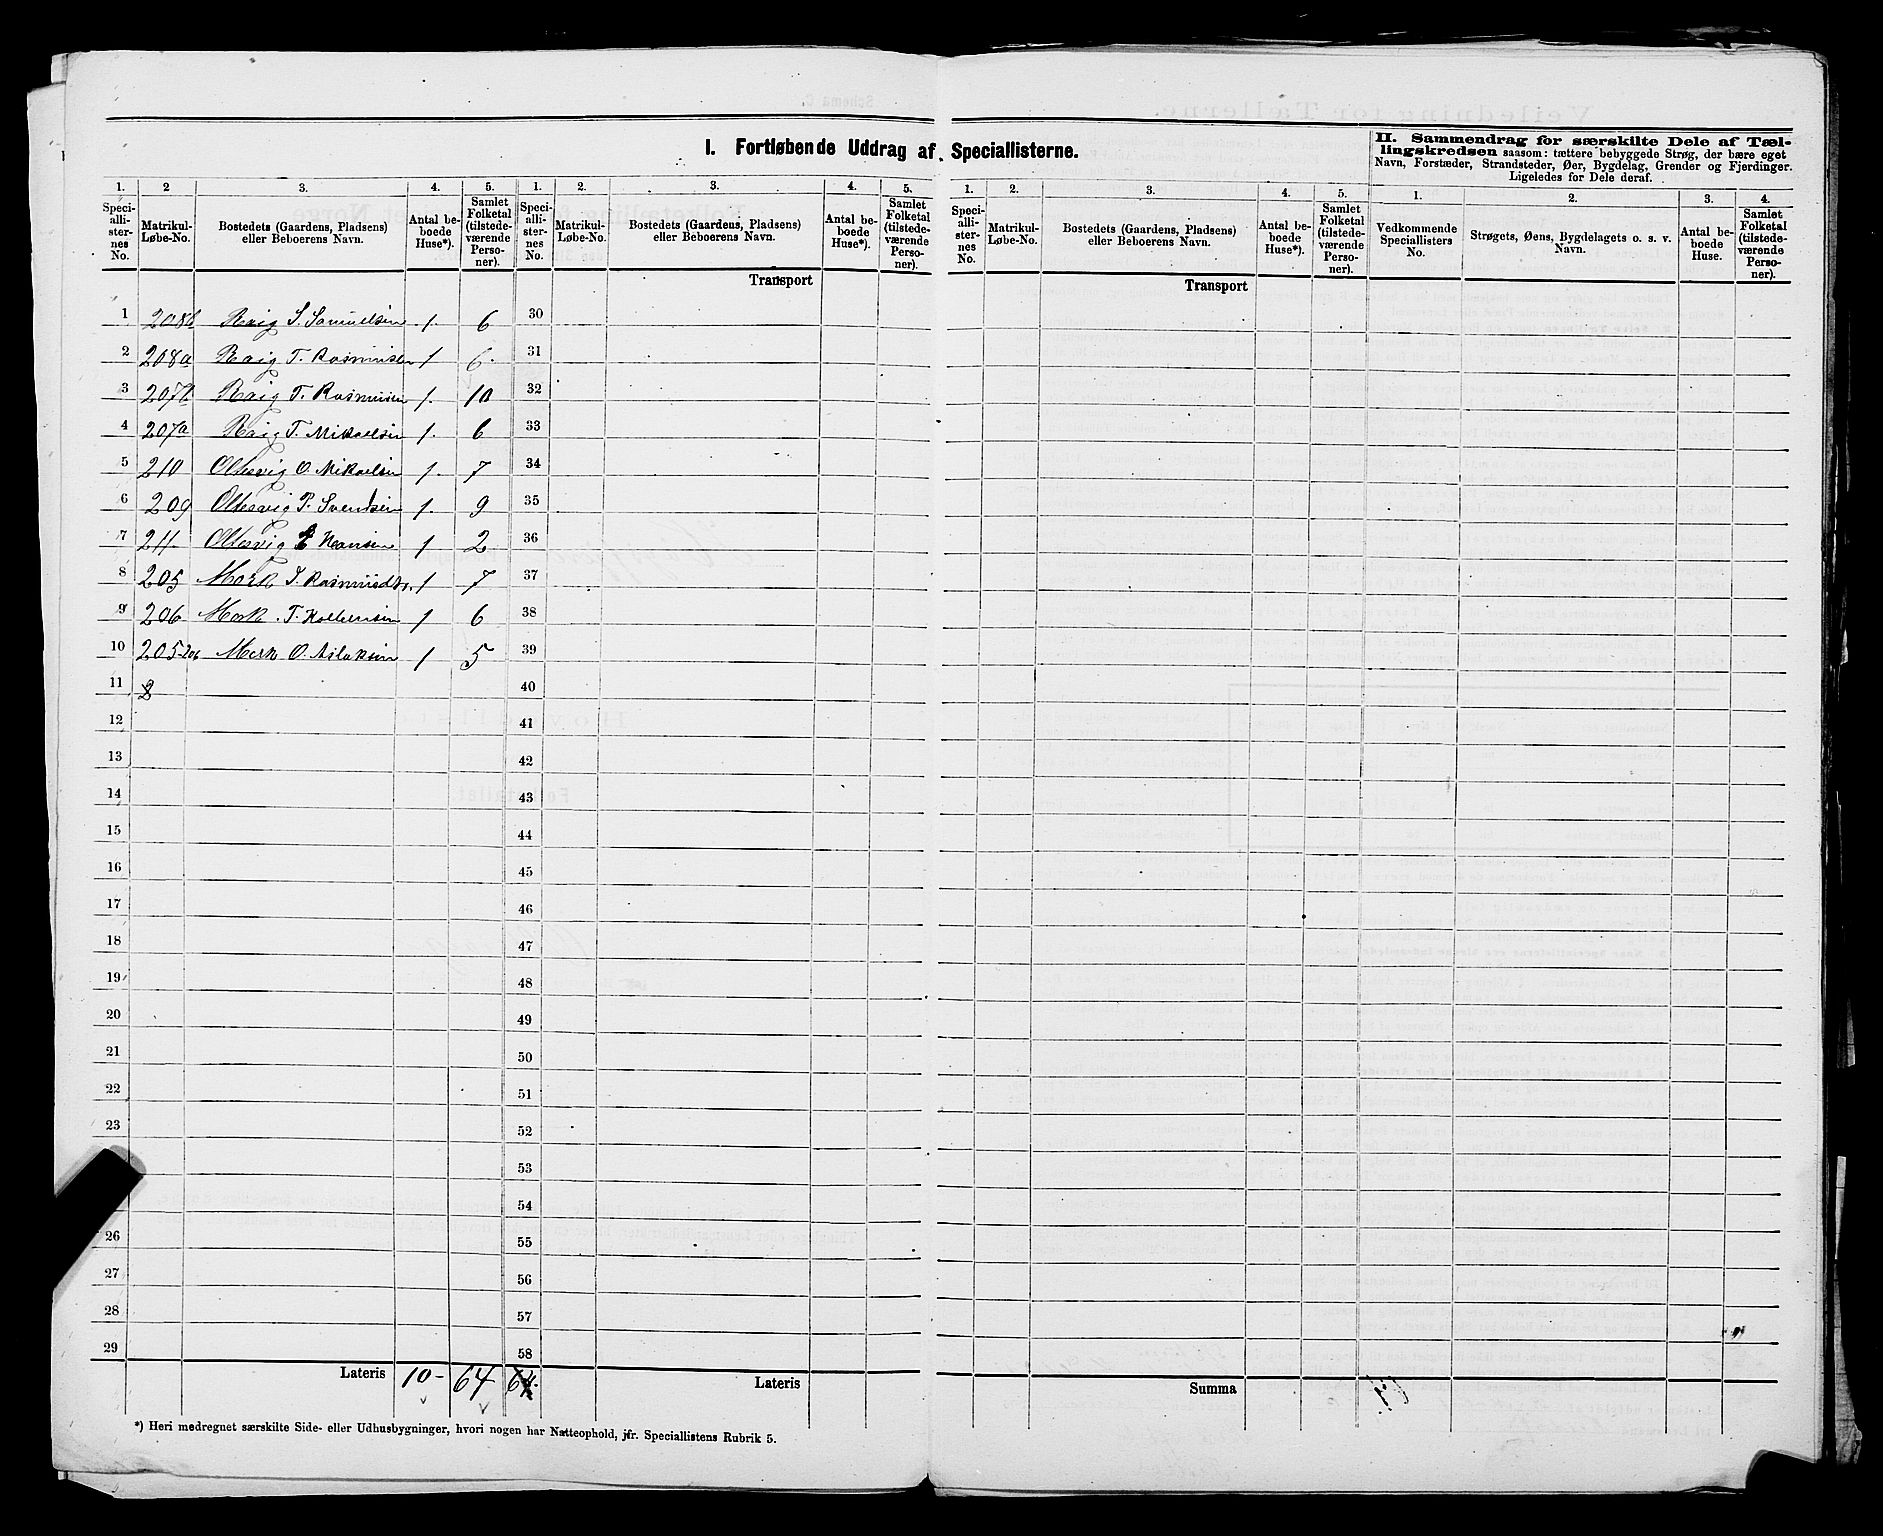 I. Fortløbende Uddrag af Speciallisterne.
II. Sammendrag for særskilte Dele af Tæl-
lingskredsen saasom: tættere bebyggede Strøg, der bære eget
Navn, Forstæder, Strandsteder, Øer, Bygdelag, Grender og Fjerdinger.
Ligeledes for Dele deraf.
1. 2 3. 4. 5. 1. 2. 3. 4. 5. 1. 2. 3. 4. 5. 1. 2. 3. 4.
Speci-
alli-
ster-
nes
No.
Matrikul-
Løbe-No.
Bostedets (Gaardens, Pladsens)
eller Beboerens Navn.
Antal be-
boede
Huse*).
Samlet
Folketal
(tilstede-
værende
Perso-
ner).
Speci-
alli-
ster-
nes
No.
Matrikul-
Løbe-No.
Bostedets (Gaardens, Pladsens)
eller Beboerens Navn.
Antal be-
boede
Huse*).
Samlet
Folketal
(tilstede-
værende
Perso-
ner).
Speci-
alli-
ster-
nes
No.
Matrikul-
Løbe-No.
Bostedets (Gaardens, Pladsens)
eller Beboerens Navn.
Antal be-
boede
Huse*).
Samlet
Folketal
(tilstede-
værende
Perso-
ner).
Vedkommende
Speciallisters
No.
Strøgets, Øens, Bygdelagets o. s. v.
Navn.
Antal be-
boede
Huse.
Samlet
Folketal
(tilstede-
værende
Perso-
ner).
Transport Transport
1 208b Røig S. Samuelsen 1. 6 30
2 208a Røig T. Rasmussen 1 6. 31
3 207b Røig T. Rasmussen 1. 10 32
4 207a Røig T. Mikaelsen 1. 6 33
5 210 Oltesvig O. Mikaelsen 1. 7 34
6 209 Oltesvig P. Svendsen 1. 9 35
7 211. Oltesvig Hansen 1 2 36
8 205 Mork 1 7 37
9 206 Mork T. 1 6 38
10 205-206 Mork O. Aslaksen 1 5 39
11 40
12 41
13 42
14 43
15 44
16 45
17 46
18 47
19 48
20 49
21 50
22 51
23 52
53
54
26 55
27 56
28 57
29 58
Lateris 10- 64 64 Lateris Summa
*) Heri medregnet særskilte Side- eller Udhusbygninger, hvori nogen har Natteophold, jfr. Speciallistens Rubrik 5.